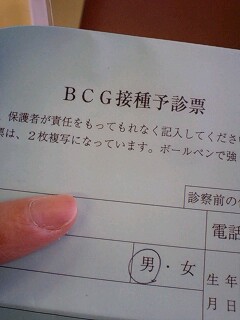 BCG接種予診票
、保護者が責任をもってもれなく記入してくださ
票は、2枚複写になっています。ボールペンで強
診察前の
電話
男・女
生年
月日